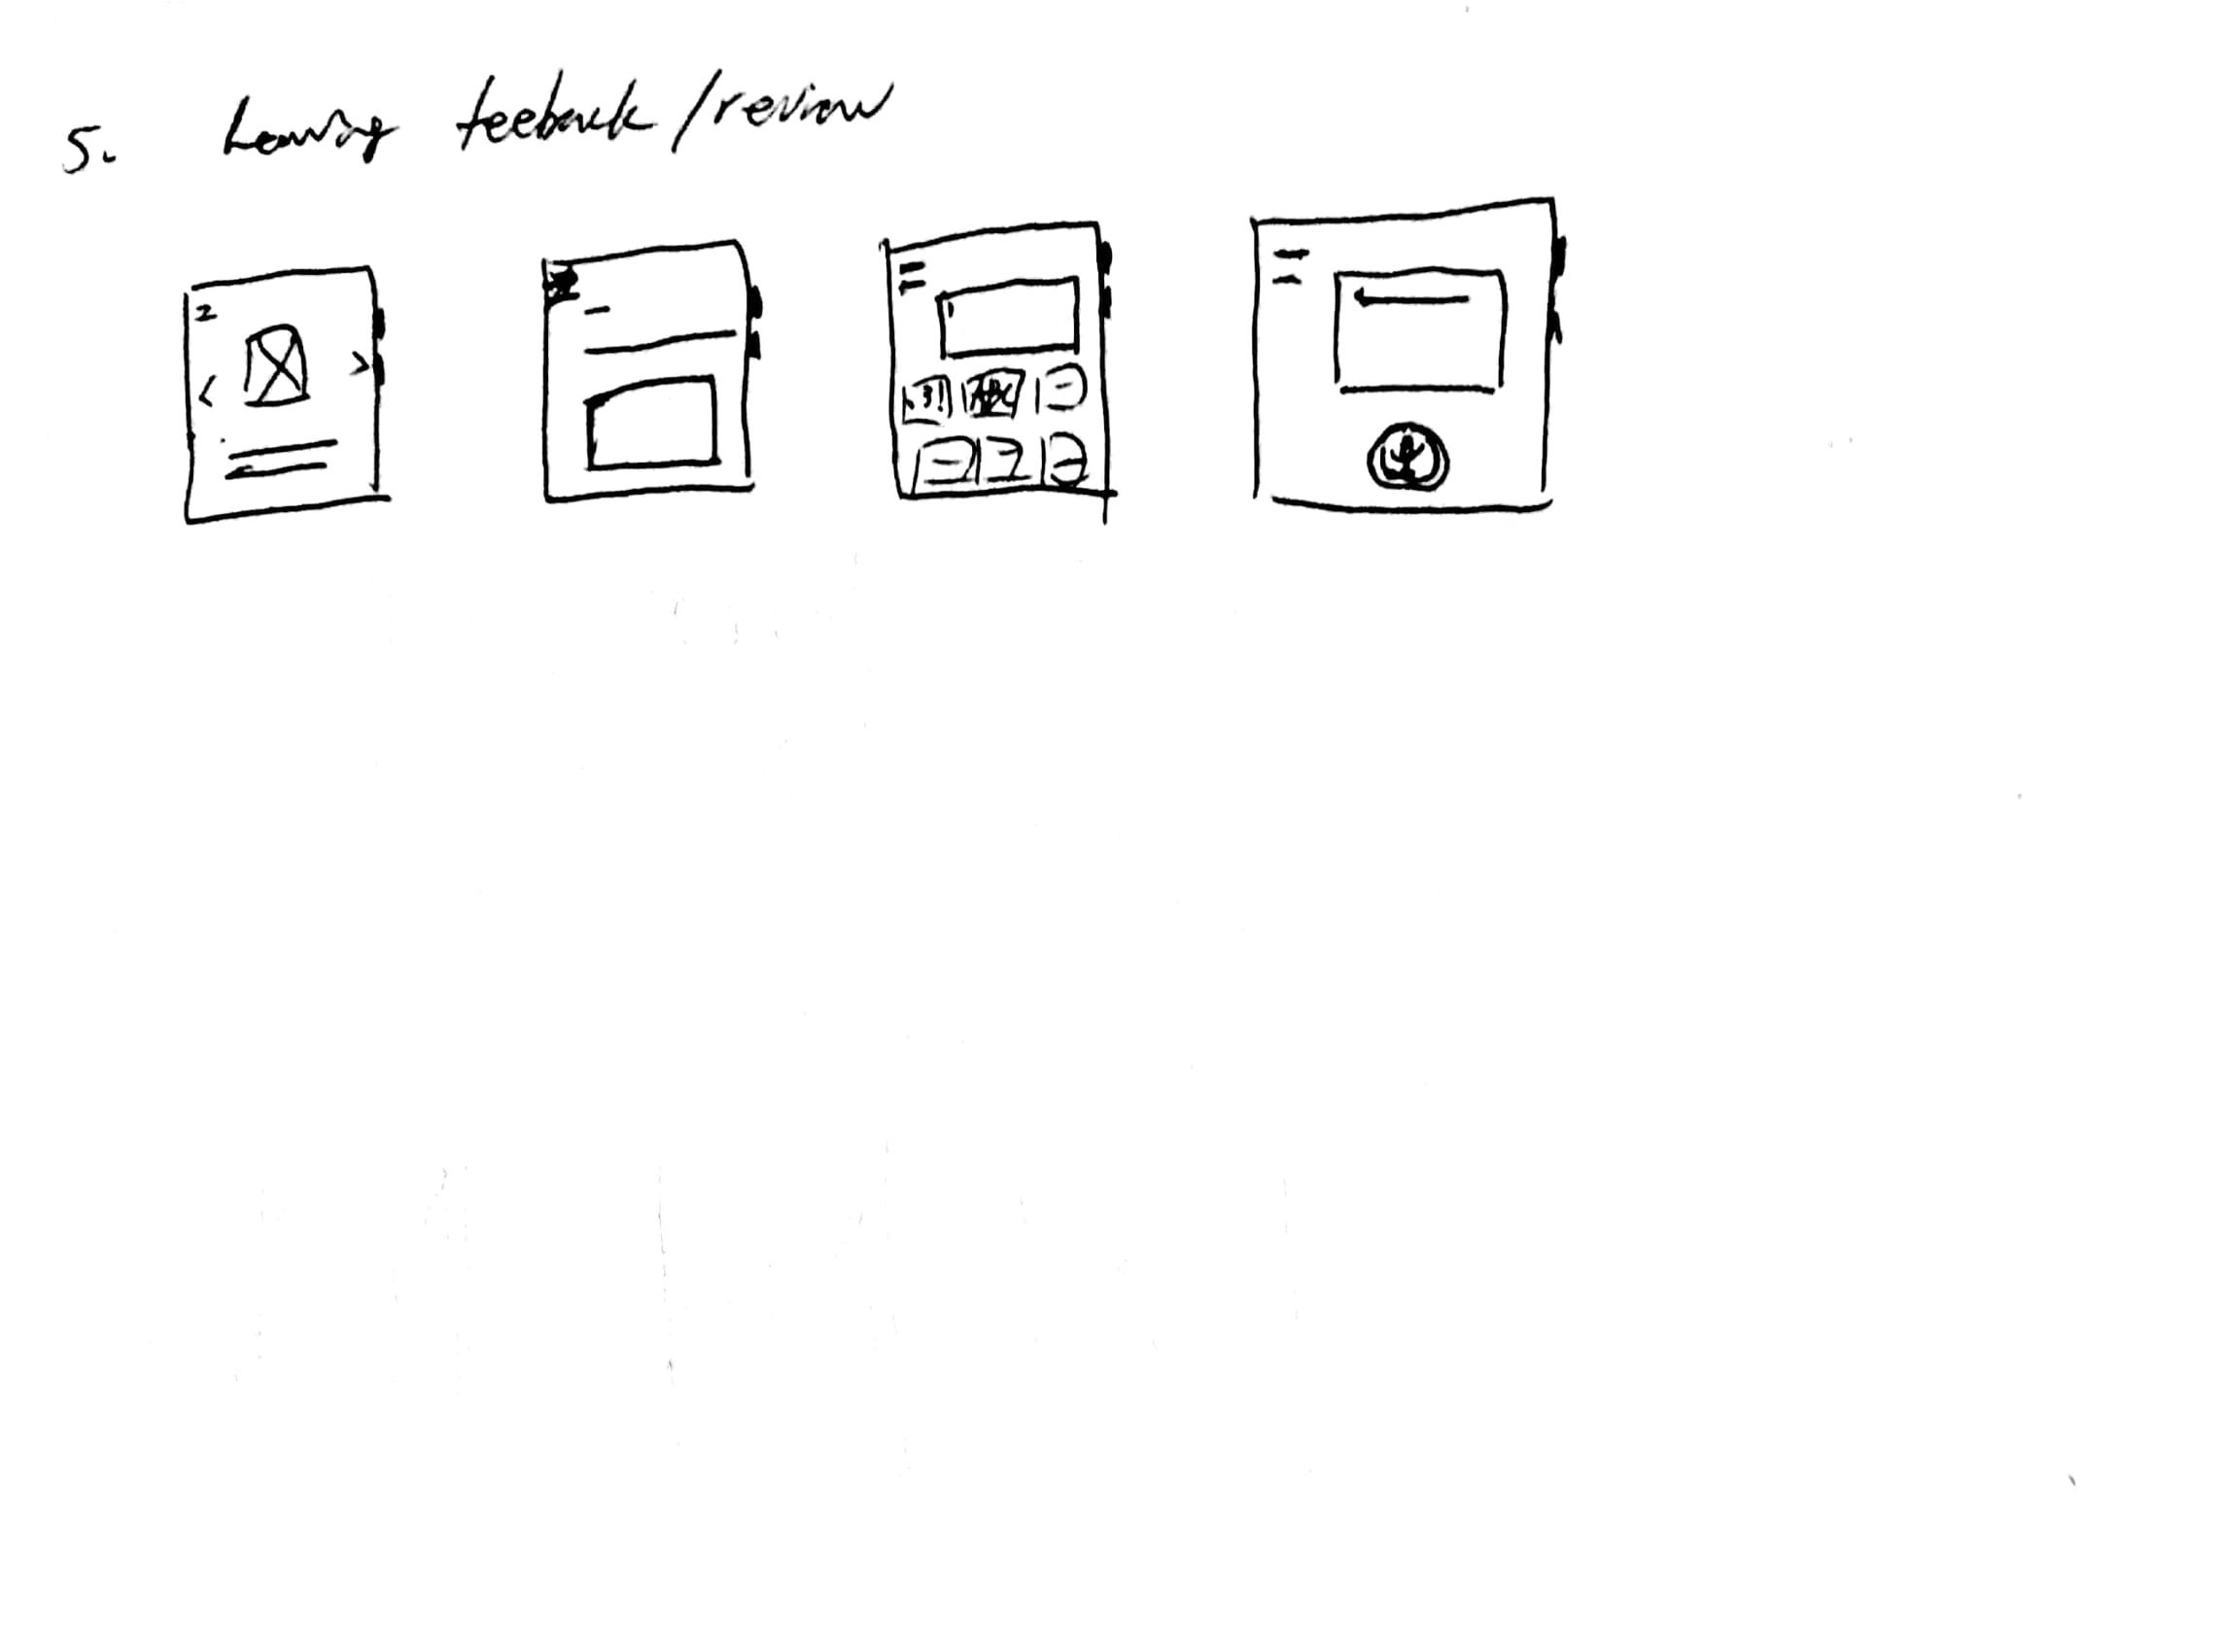 5. Leaving feeback/review
ABC